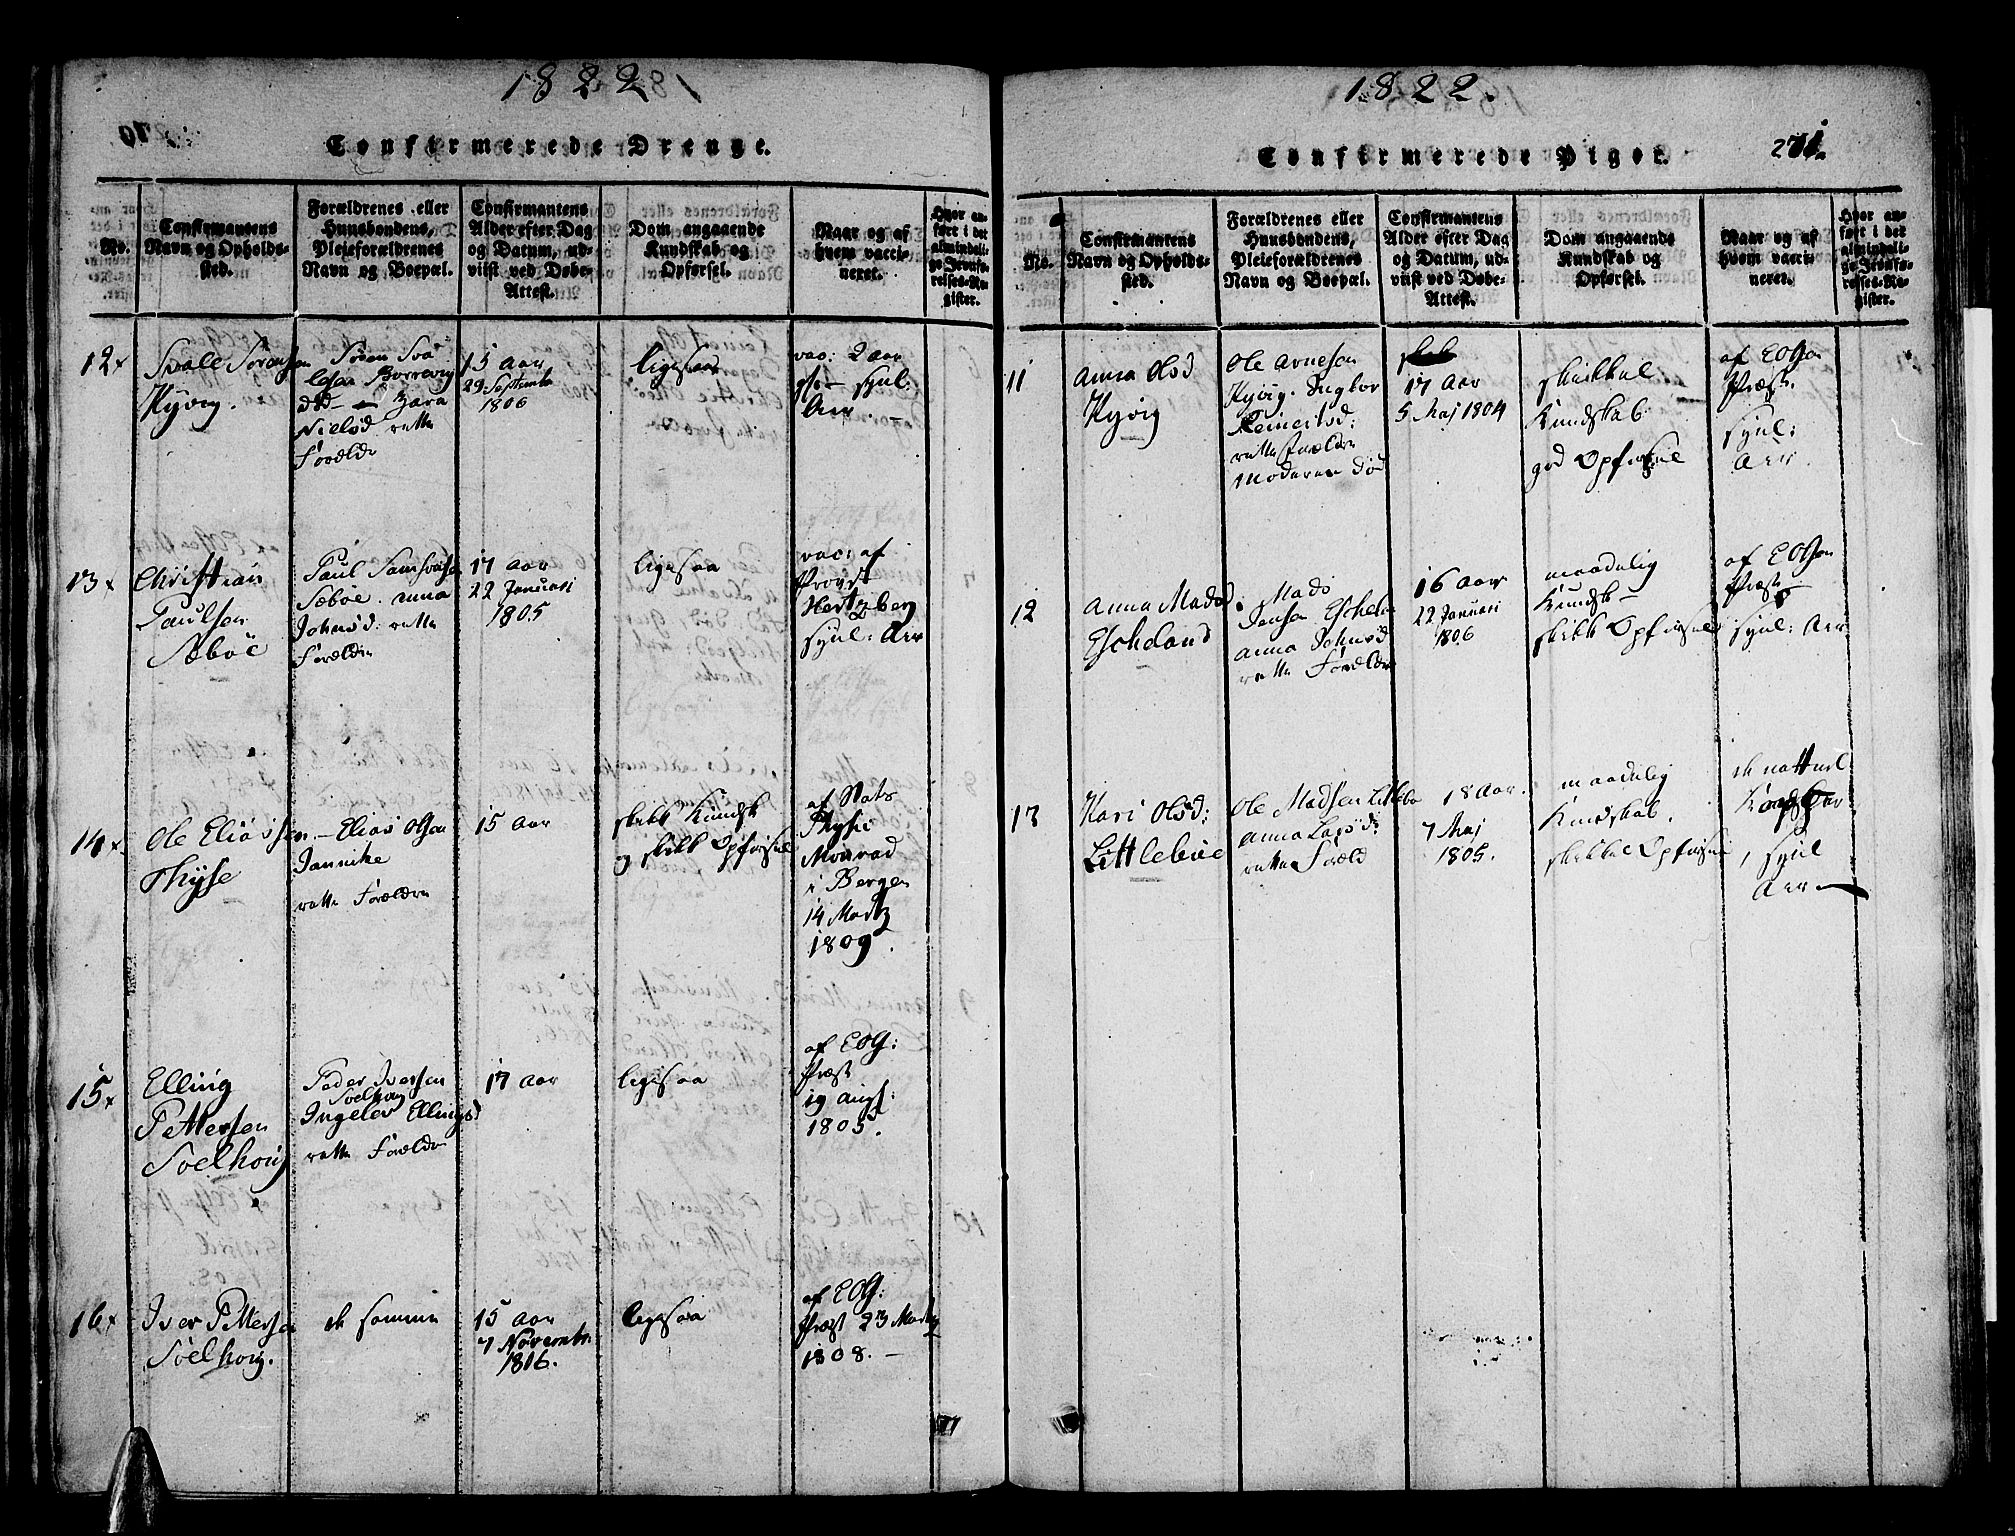 1822
Confirmerede Drenge.
No.
Confirmantens
Navn og Opholds-
sted.
Forældrenes eller
Huusbondens,
Pleieforældrenes
Navn og Boepæl.
Confirmantens
Alder efter Dag
og Datum, ud-
viist ved Døbe-
Attest.
Dom angaaende
Kundskab og
Opførsel.
Naar og af
hvem vacci-
neret.
Hvor an-
ført i det
almindeli-
ge Jevnfø-
relses-Re-
gister.
12
Sørensen
Hyvig.
Søren
Nielsd rette
Forældre
15 aar
29 Septembr
1806
ligesaa
vac: 2 aar
synl:
Arr. -
13
Christian
Paulsen
Sæbøe
Paul Samsonsen
Sæbøe. Anna
Johnsd: rette
Forældre
17 aar
22 Januari
1805
ligesaa
vac: af
Provst
Hertzberg
synl: Arr
14
Ole Eliassen
Thyse
Elias Olsen
Jannike
rette Forældre
15 aar
skikk Kundsk
og skikk Opførsel
af Stats
Physic
Monrad
i Bergen
14 Martz
1809.
15
Elling
Pettersen
Soelhoug
Peder Iversen
Soelhoug
Ingelev Ellingsd
rette Forældre
17 aar
ligesaa
af EOG:
Præst
19 Aug:
1805.
16
Iver Pettersen
Soelhoug.
de samme
15 aar
7 Novembr
1806.
ligesaa
af EOG:
Præst 23 Martz
1808. -
1822.
Confirmerede Piger.
271.
No.
Confirmantens
Navn og Opholds-
sted.
Forældrenes eller
Huusbondens,
Pleieforældrenes
Navn og Boepæl.
Confirmantens
Alder efter Dag
og Datum, ud-
viist ved Døbe-
Attest.
Dom angaaende
Kundskab og
Opførsel.
Naar og af
hvem vacci-
neret.
Hvor an-
ført i det
almindeli-
ge Jevnfø-
relses-Re-
gister.
11
Anna Olsd
Hyvig
Ole Arnesen
Hyvig. Ingbor
Reinertsd:
rette Forældre
Moderen død
17 aar
5 Maj 1804
skikkel
Kundskab
god Opførsel
af EOGrn
Præst.
synl:
Arr.
12
Anna Madsd
Escheland
Mads
Jensen Eschelan
Anna Johnsd
rette Forældre
16 aar
22 Januari
1806
maadelig
Kundsk-
skikk Opførsel
af EOGrn
Præst
synl: Arr
13
Kari Olsd:
Littleböe
Ole Madsen Littlebø
Anna Larsd:
rette Foræld
18 aar.
7 Maj
1805.
maadelig
Kundskab.
skikkel Opførsel
de natturl
Kopper
synl
Arr